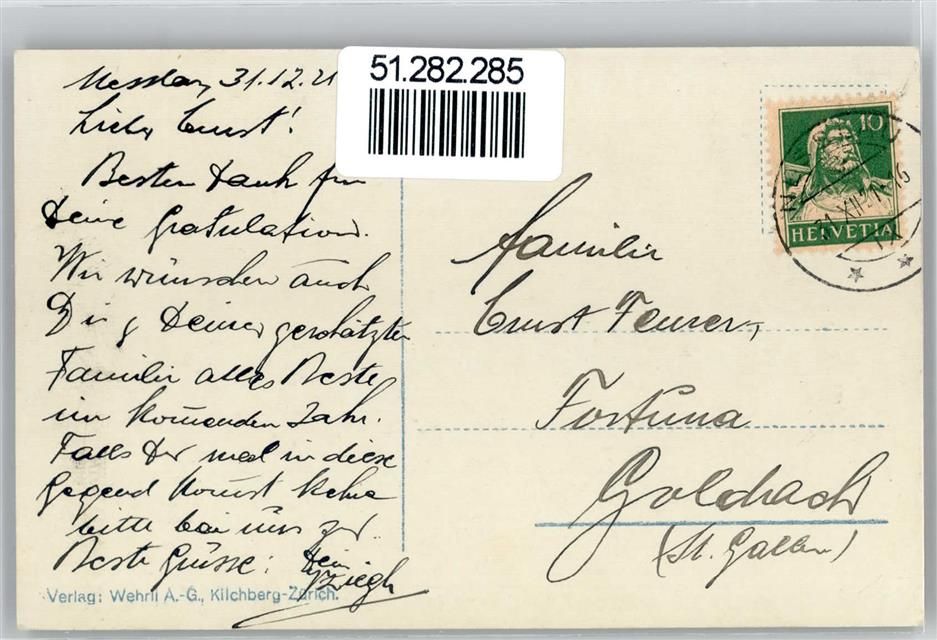 31.12.21
51.282.285
Lieber Ernst!
Besten Dank für
Deine Gratulation.
Wir wünschen auch
Dir & Deiner geschätzten
Familie alles Beste
im komenden Jahr.
Falls Du mal in diese
Gegend komst kehre
bitte bei uns zu.
Beste Grüsse: Dein
Verlag: Wehrli A.-G., Kilchberg-Zürich.
10
HELVETIA
Familie
Ernst Feurer,
Fortuna
Goldach
(St. Gallen)